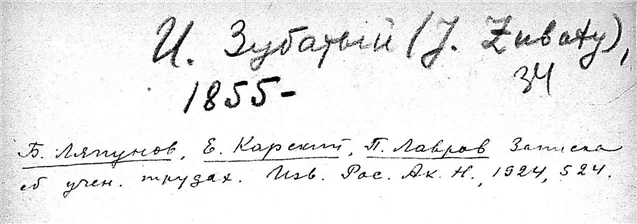 И. Зубатый (J. Zubaty),
34
1855-
Б. Ляпунов, Е. Карский, П. Лавров Записка
об учен. трудах. Изв. Рос. Ак. Н., 1924, 524.